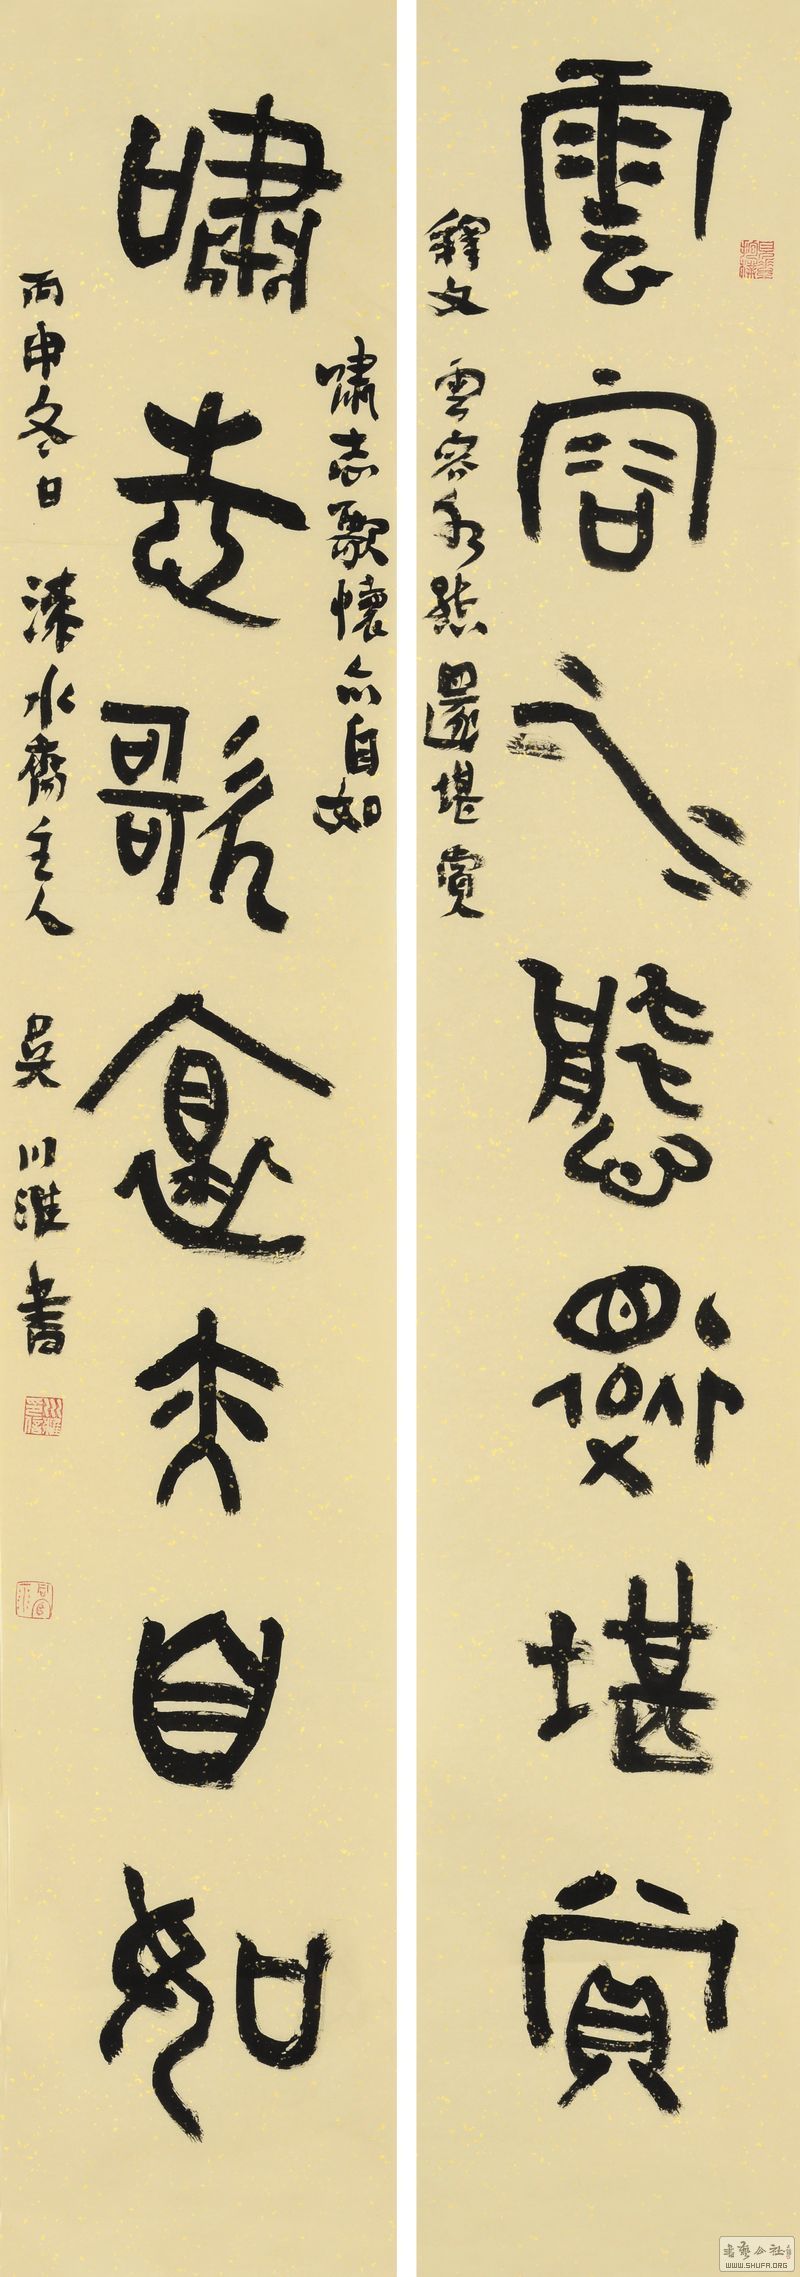 雲容水態還堪賞
釋文 雲容水態還堪賞
嘯志歌懷亦自如
嘯志歌懷亦自如
丙申冬日 涑水齋主人 吳川淮書
書藝公社
WWW.SHUFA.ORG